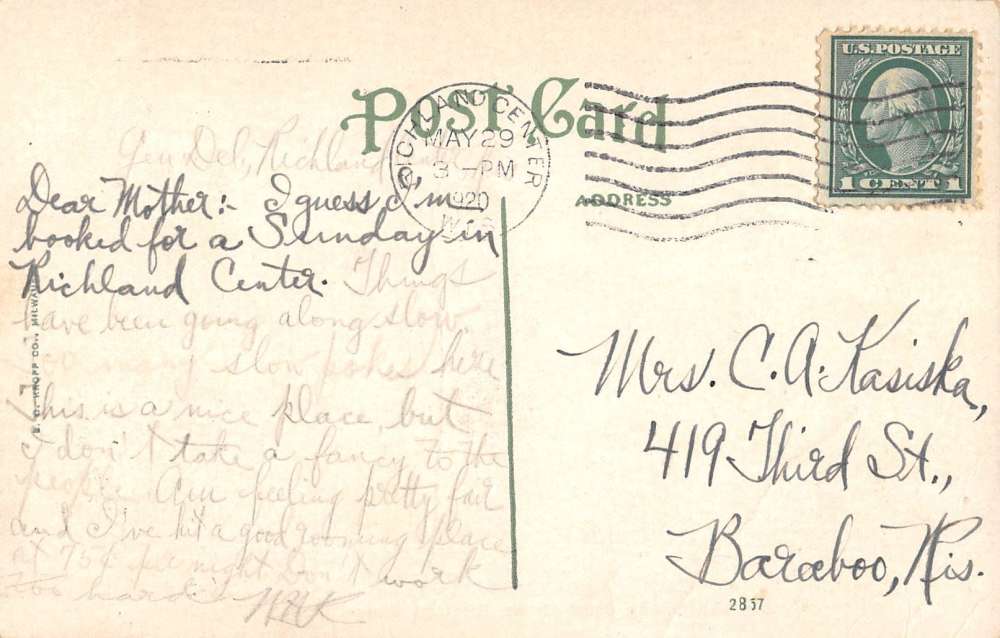 Post Card
RICHLAND CENTER
MAY 29
3-PM
1920
WIS.
U.S. POSTAGE
1 CENT 1
ADDRESS
Gen Del, Richland
Dear Mother:- I guess I'm
booked for a Sunday in
Richland Center. Things
have been going along slow.
Too many slow pokes here
This is a nice place, but
I don't take a fancy to the
people. Am feeling pretty fair
and I've hit a good rooming place
at 75¢ per night Don't work
too hard.
Mrs. C. A. Kasiska,
419 Third St.,
Baraboo, Wis.
E. C. KROPP CO., MILWAU
2857